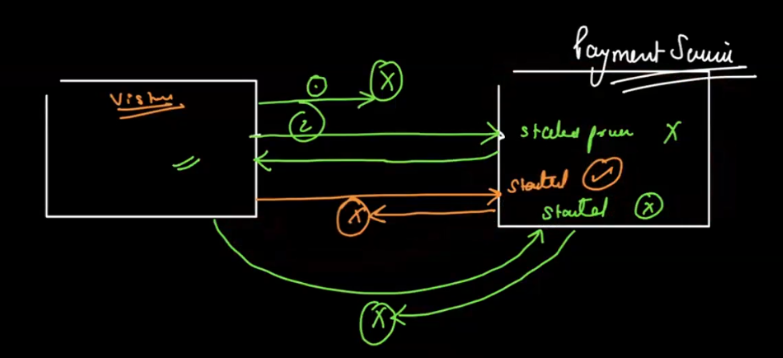 Payment Service
X
Vishu
2
started proces X
started ✓
X
started X
X